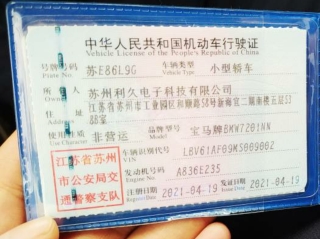 中华人民共和国机动车行驶证
Vehicle License of the People's Republic of China
号牌号码 苏E86L9G 车辆类型 小型轿车
Plate No. Vehicle Type
所有人 苏州利久电子科技有限公司
住址 江苏省苏州市工业园区和顺路58号新海宜二期南楼五层
88室
使用性质 非营运 品牌型号 宝马牌BMW7201NN
江苏省苏州
市公安局交
通警察支队
车辆识别代号 LBV61AF09MS00900Z
VIN
发动机号码 A836E235
注册日期 2021-04-19 发证日期 2021-04-19